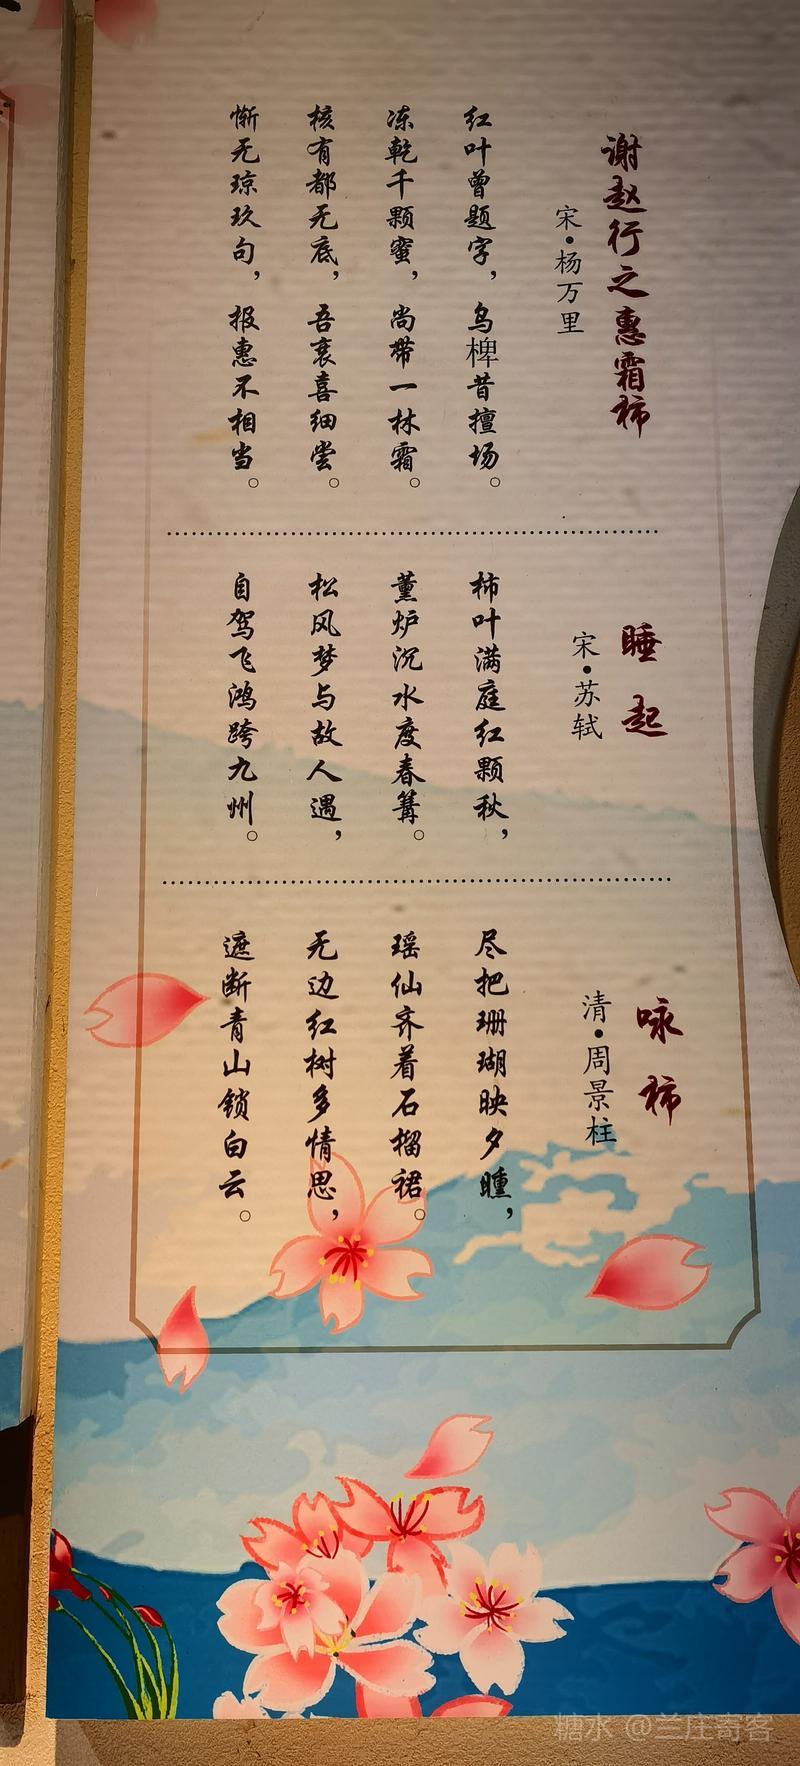 谢赵行之惠霜柿
宋•杨万里
红叶曾题字，乌椑昔擅场。
冻乾千颗蜜，尚带一林霜。
核有都无底，吾衰喜细尝。
惭无琼玖句，报惠不相当。
睡起
宋•苏轼
柿叶满庭红颗秋，
薰炉沉水度春篝。
松风梦与故人遇，
自驾飞鸿跨九州。
咏柿
清•周景柱
尽把珊瑚映夕曛，
瑶仙齐着石榴裙。
无边红树多情思，
遮断青山锁白云。
糖水 @兰庄奇客